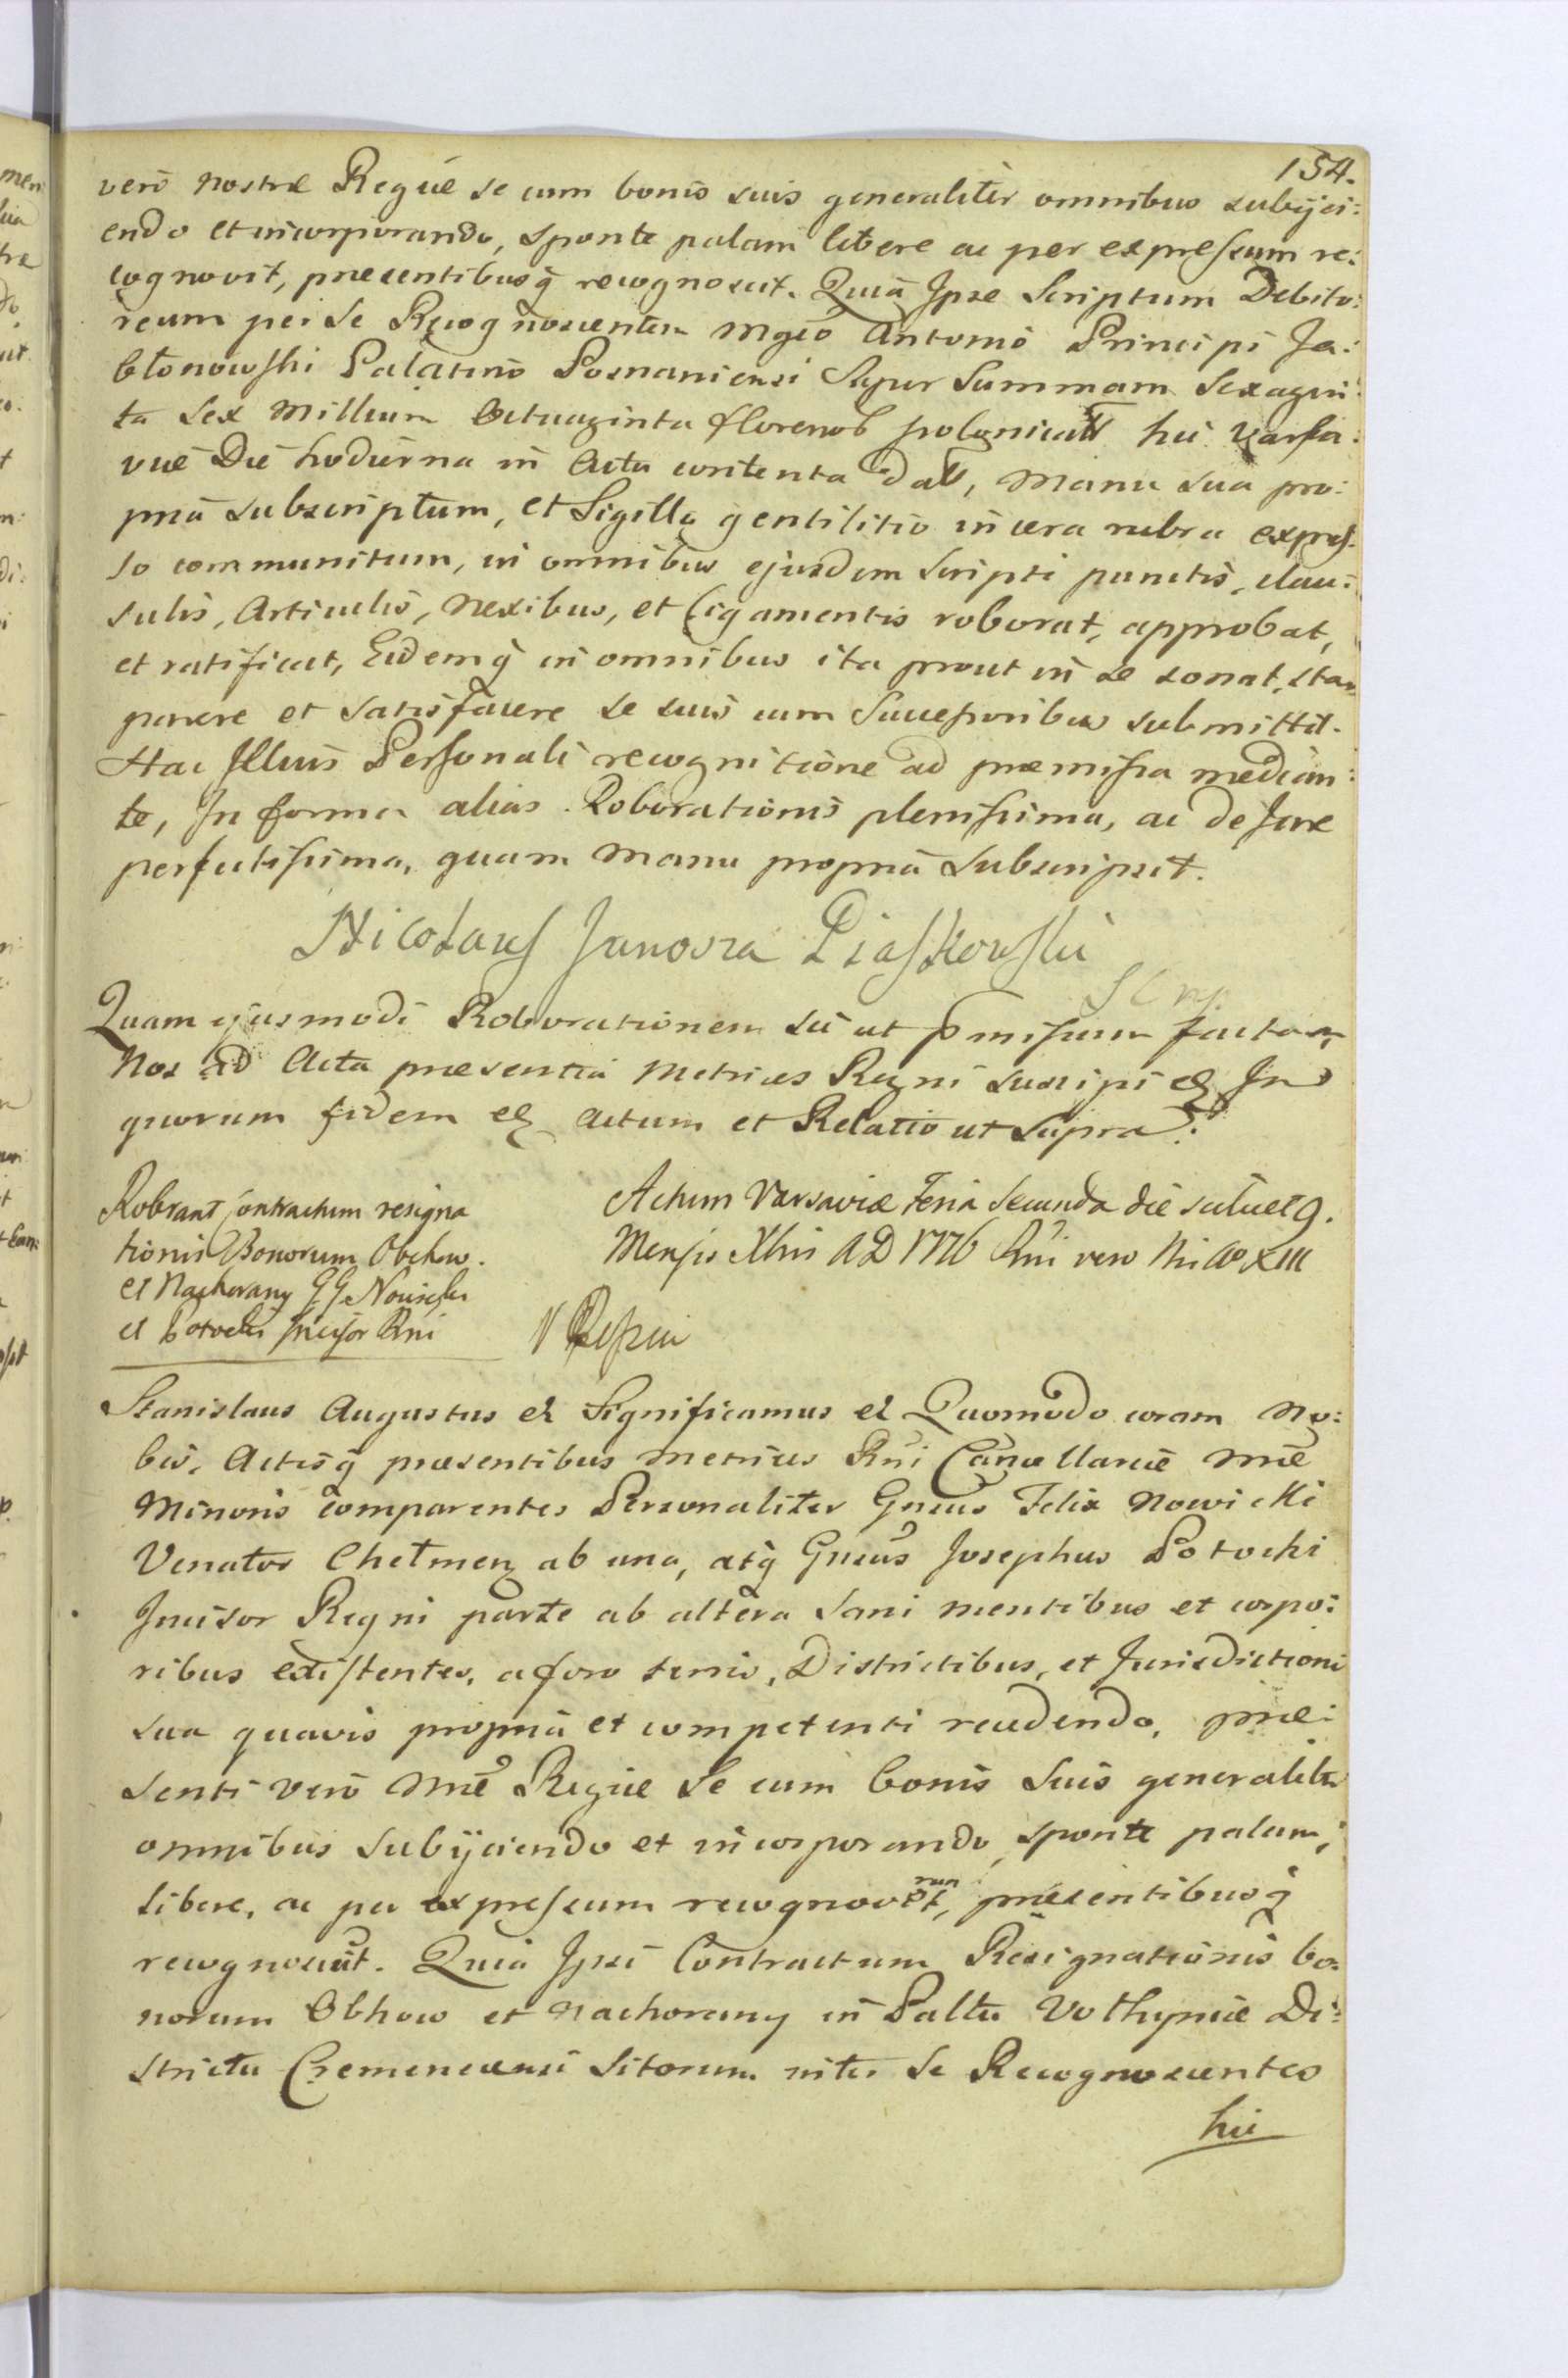 154.
vero nostræ Regiæ se cum bonis suis generaliter omnibus subijci:
endo et incorporando, sponte palam libere ac per expressum re:
cognovit, præsentibusq̃ recognoscit. Quia Ipse Scriptum Debito:
reum per se Recognoscentem Mgco Antonio Principi Ja:
błonowski Palatino Posnaniensi Super Summam Sexagin:
ta Sex Millium Octuaginta florenor polonical hic Varsa:
viæ Die hodierna in Actu contenta dat, Manu sua pro:
pria subscriptum, et Sigillo gentilitio in cera rubra expres:
so communitum, in omnibus ejusdem Scripti punctis, clau:
sulis, Articulis, Nexibus, et Ligamentis roborat, approbat,
et ratificat, Eidemq̃ in omnibus ita prout in se sonat, sta
parere et satisfacere se suis cum Successoribus submittit.
Hac Illius Personali recognitione ad præmissa median:
te, In forma alias Roborationis plenissima, ac de Jure
perfectissima, quam Manu propria Subscripsit.
Nicolaus Junosza Piaskowski
Quam ejusmodi Roborationem sic ut pmissum factam
Nos ad Acta præsentia Metrices Regni suscipi & In
quorum fidem & Actum et Relatio ut Supra.
Robrant Contractum resigna
tionis Bonorum Obchow.
et Nachorany GG Nowicki
et Potocki Incisor Rni
Actum Varsaviæ Feria Secunda die scilicet 9.
Mensis Xbris AD 1776 Rni vero Ni Ao XIII
Stanislaus Augustus & Significamus & Quomodo coram No:
bis, Actisq̃ præsentibus Metrices Rni Cancellariæ Nræ
Minoris comparentes Personaliter Gnsus Felix Nowicki
Venator Chełmen ab una, atq̃ Gnsus Josephus Potocki
Incisor Regni parte ab altera Sani mentibus et corpo:
ribus existentes, a foro terris, Districtibus, et Jurisdictioni
sua quavis propria et competenti recedendo, præ:
senti vero Nræ Regiæ Se cum bonis Suis generaliter
omnibus Subijciendo et incorporando, sponte palam,
libere, ac per expressum recognoverunt, præsentibusq̃
recognoscut. Quia Ipsi Contractum Resignationis bo:
norum Obhow et Nachorany in Pallu Volhyniæ Di:
strictu Cremenecensi Sitorum inter Se Recognoscentes
hic